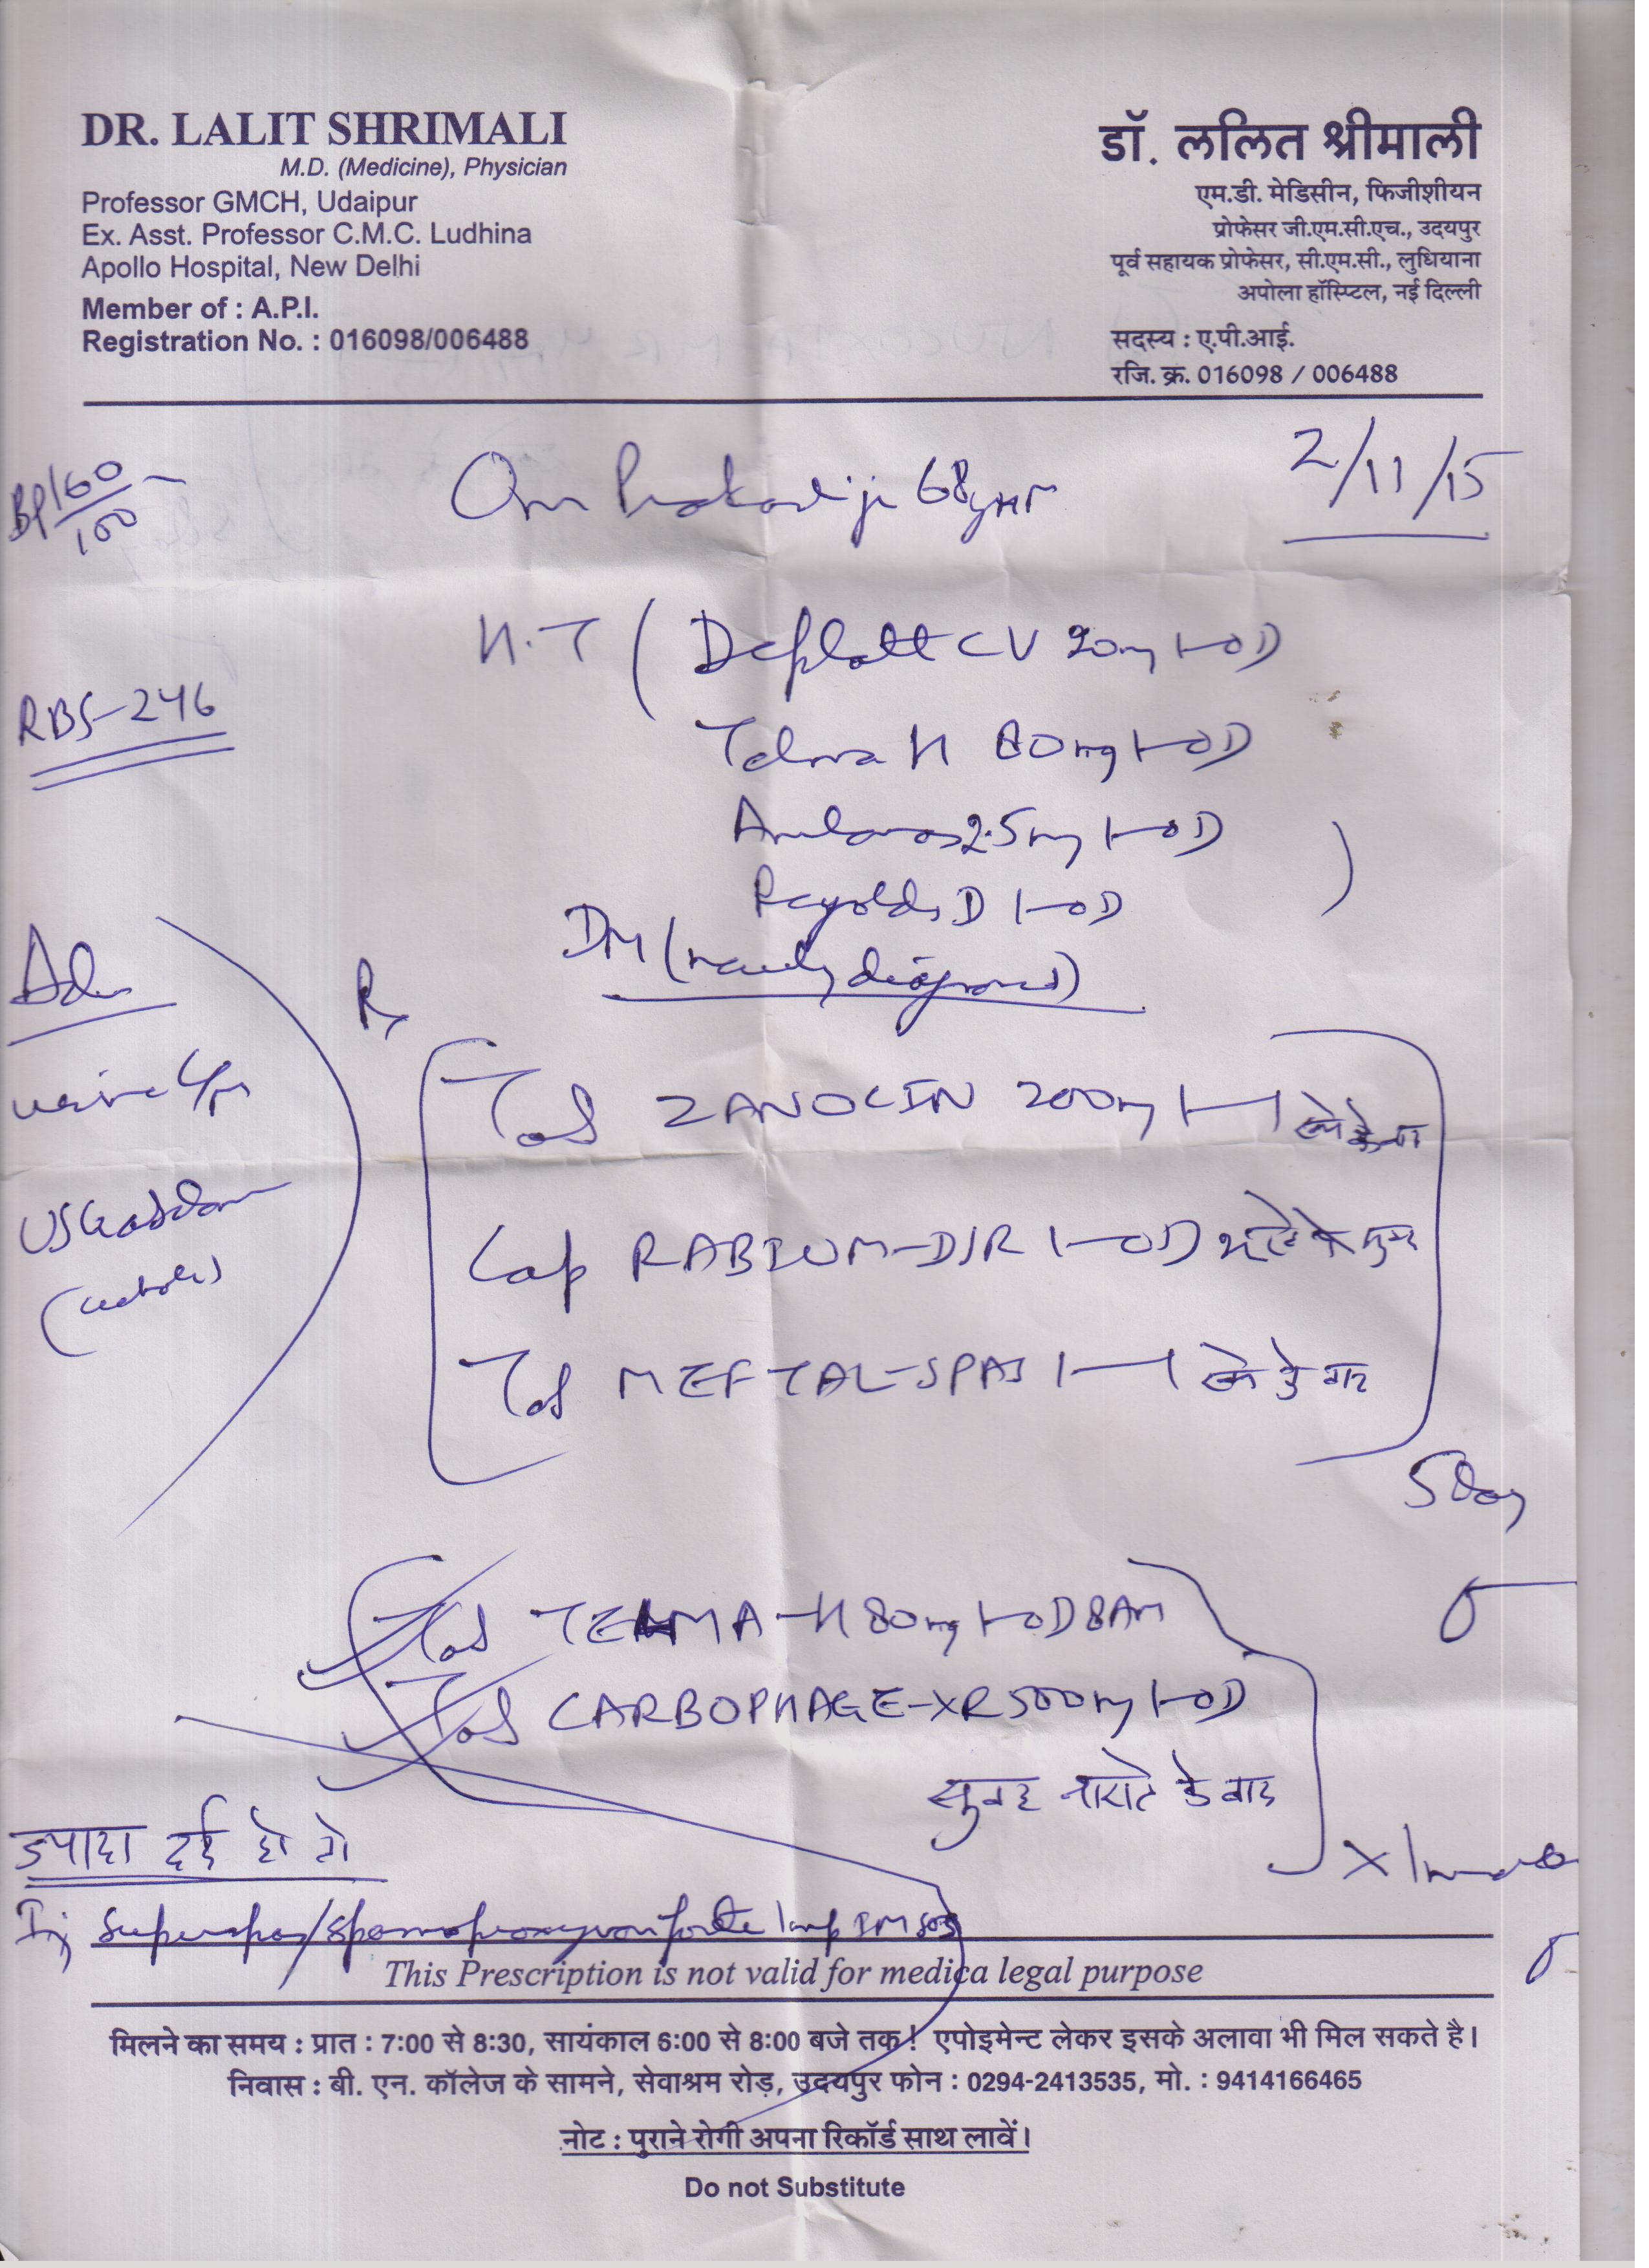 DR. LALIT SHRIMALI
M.D. (Medicine), Physician
Professor GMCH, Udaipur
Ex. Asst. Professor C.M.C. Ludhina
Apollo Hospital, New Delhi
Member of : A.P.I.
Registration No. : 016098/006488
डॉ. ललित श्रीमाली
एम.डी. मेडिसीन, फिजीशीयन
प्रोफेसर जी.एम.सी.एच., उदयपुर
पूर्व सहायक प्रोफेसर, सी.एम.सी., लुधियाना
अपोला हॉस्प्टिल, नई दिल्ली
सदस्य : ए.पी.आई.
रजि. क्र. 016098 / 006488
BP 160/100
Om Prakash ji 68
2/11/15
H.T ( Deplatt CV 20mg 1-OD
RBS-246
Telma H 80mg 1-OD
2.5mg 1-OD )
D 1-OD
DM (newly diagnosed)
Adv
Rx
Tab ZANOCIN 200mg 1-1
urine
Cap RABIUM-DSR 1-OD
USG abdomen
Tab MEFTAL-SPAS 1-1 खाने के बाद
5 day
Tab TELMA-H 80mg 1-OD 8AM
Tab CARBOPHAGE-XR 500mg 1-OD
सुबह नाश्ते के बाद
ज्यादा दर्द हो तो
X 1
Inj Superspas/Spasmoproxyvon forte 1 amp IM SOS
This Prescription is not valid for medica legal purpose
मिलने का समय : प्रात : 7:00 से 8:30, सायंकाल 6:00 से 8:00 बजे तक ! एपोइमेन्ट लेकर इसके अलावा भी मिल सकते है।
निवास : बी. एन. कॉलेज के सामने, सेवाश्रम रोड़, उदयपुर फोन : 0294-2413535, मो. : 9414166465
नोट : पुराने रोगी अपना रिकॉर्ड साथ लावें।
Do not Substitute